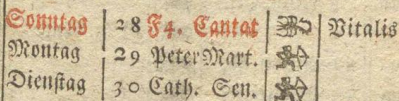 Sonntag 28 F4. Cantat Vitalis
Montag 29 Peter Mart.
Dienſtag 30 Cath. Sen.